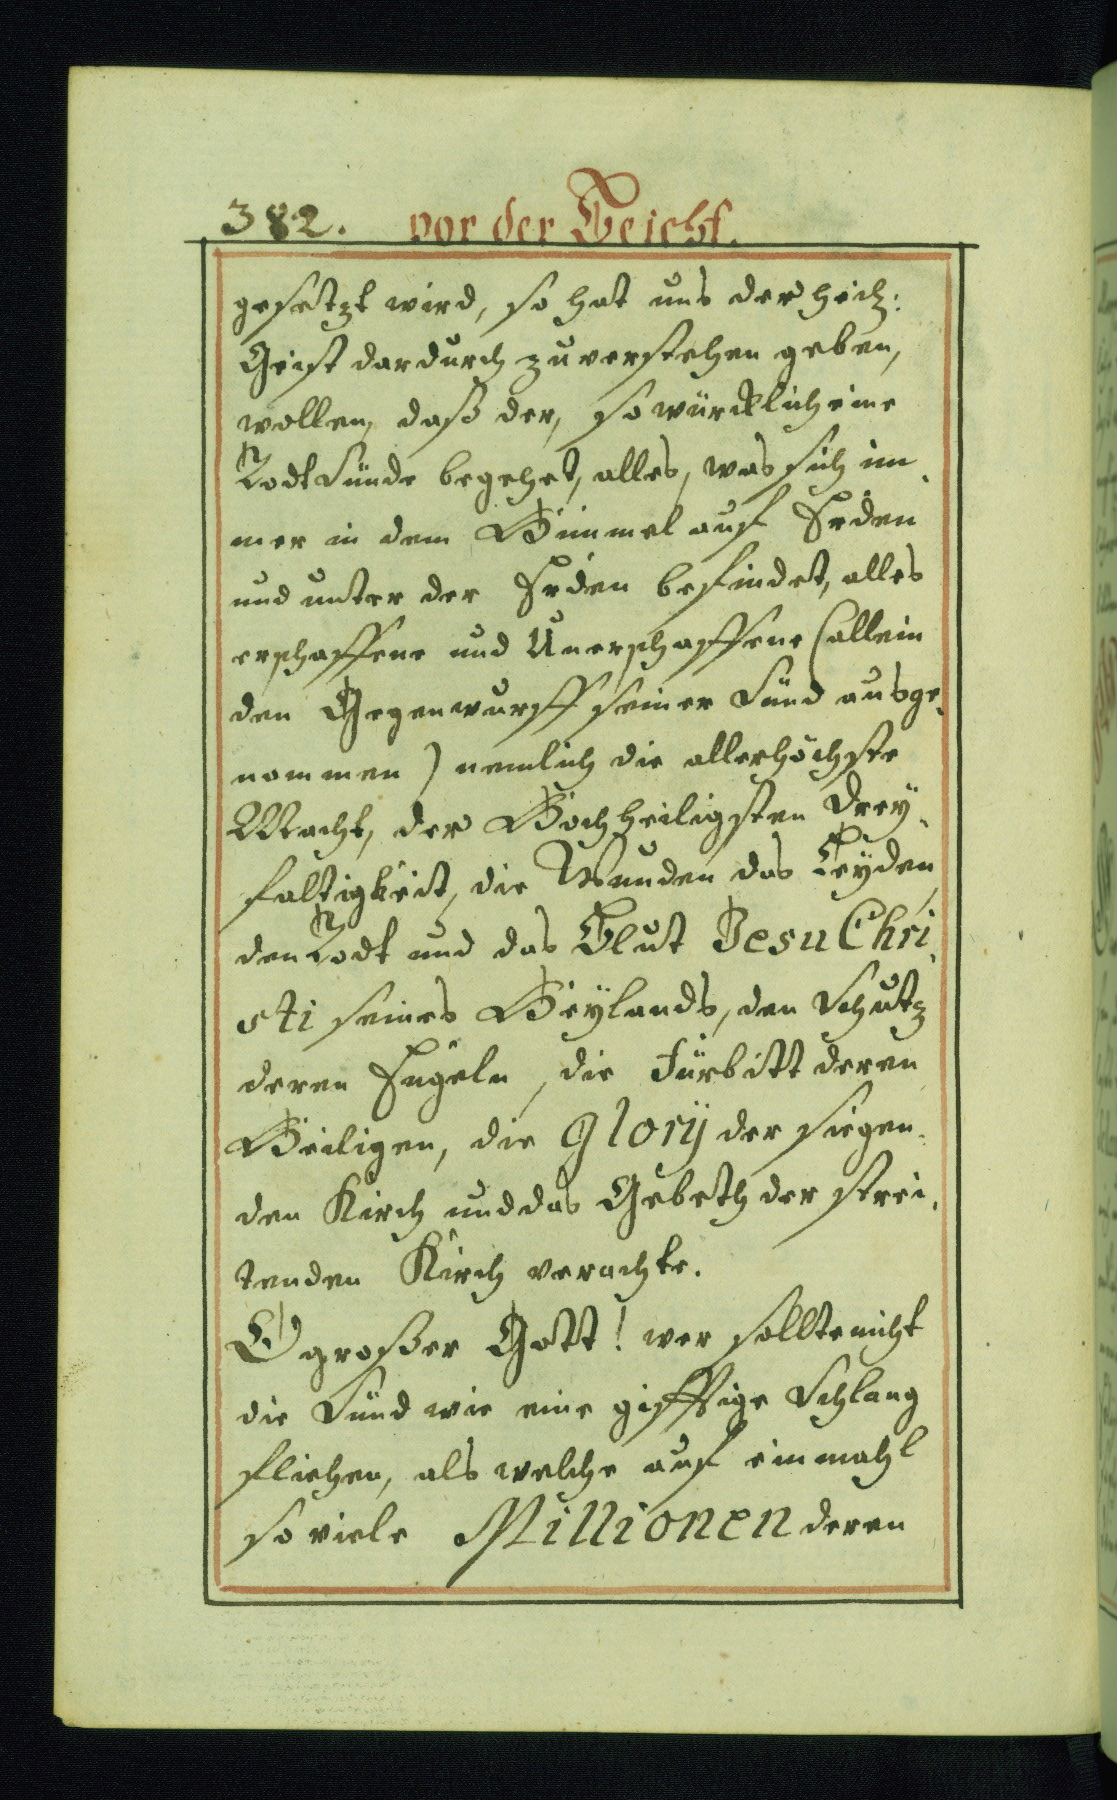 382. vor der Beicht.
gesetzt wird, so hat uns der heil:
Geist dardurch zuverstehen geben,
wollen, daß der, so würcklich eine
Todt Sünde begehet, alles, was sich im¬
mer in dem Himmel auf Erden
und unter der Erden befindet, alles
erschaffene und Unerschaffene (allein
den Gegenwurff seiner Sünd ausge¬
nommen) nemlich die allerhöchste
Macht, der Hochheiligsten Drey¬
faltigkeit, die Wunden das Leyden,
den Todt und das Blut Jesu Chri¬
sti seines Heylands, den Schutz
deren Engeln, die Fürbitt deren
Heiligen, die Glory der siegen¬
den Kirch und das Gebeth der strei¬
tenden Kirch verachte.
O großer Gott! wer sollte nicht
die Sünd wie eine gifftige Schlang
fliehen, als welche auf einmahl
so viele Millionen deren